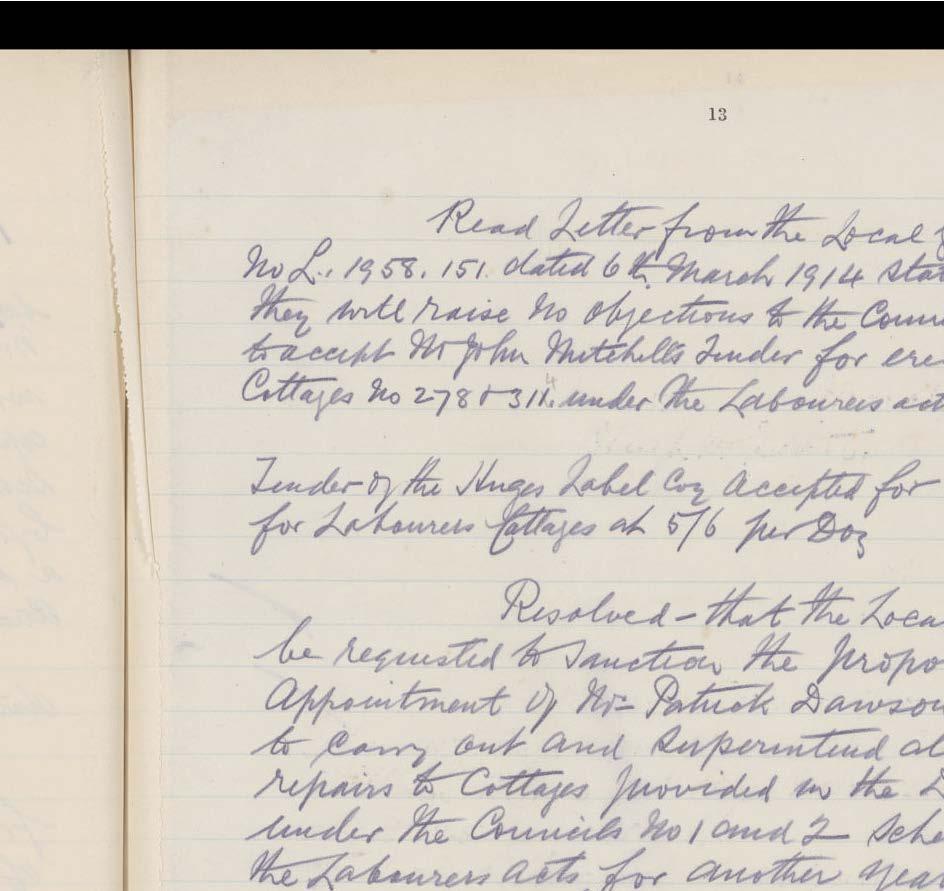 13
Read Letter from the Local
No L. 1958. 151. dated 6th March 1914 stat
they will raise no objections to the Coun
to accept Mr John Mitchell's Tender for ere
Cottages No 278 & 311. under the Labourers act
Tender of the Hughes Label Coy Accepted for
for Labourers Cottages at 5/6 per Doz
Resolved - that the Loca
be requested to Sanction the propo
Appointment of Mr Patrick Dawson
to carry out and superintend al
repairs to Cottages provided in the D
under the Councils No 1 and 2 Sche
the Labourers Acts for another year